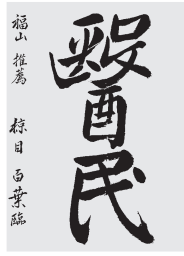 醫民
福山 推薦 椋目 百葉臨